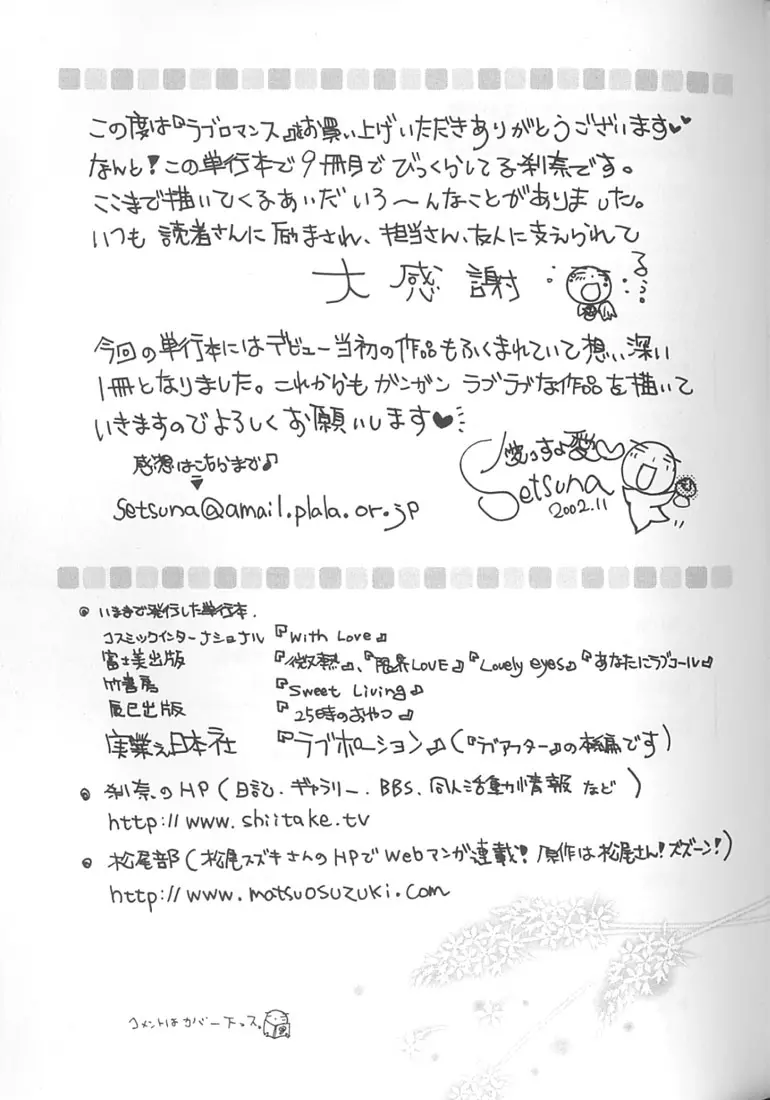 この度は『ラブロマンス』をお買い上げいただきありがとうございます♥♥
なんと!この単行本で9冊目でびっくらしてる刹奈です。
ここまで描いてくるあいだいろ〜んなことがありました。
いつも読者さんに励まされ、担当さん、友人に支えられて
大感謝
今回の単行本にはデビュー当初の作品もふくまれていて想い深い
1冊となりました。これからもガンガンラブラブな作品を描いて
いきますのでよろしくお願いします♥
感想はこちらまで♪
▼
setsuna@amail.plala.or.jp
Setsuna
2002.11
●いままで発行した単行本.
コスミックインターナショナル『With Love』
富士美出版『微熱』、『限界LOVE』『Lovely eyes』『あなたにラブコール』
竹書房『Sweet Living』
辰巳出版『25時のおやつ』
実業之日本社『ラブポーション』(『ラブアフター』の本編です)
●刹奈のHP(日記.ギャラリー.BBS、同人活動情報など)
http://www.shiitake.tv
●松尾部(松尾スズキさんのHPでWebマンガ連載!原作は松尾さん!ズズーン!)
http://www.matsuosuzuki.com
コメントはカバー下っス。